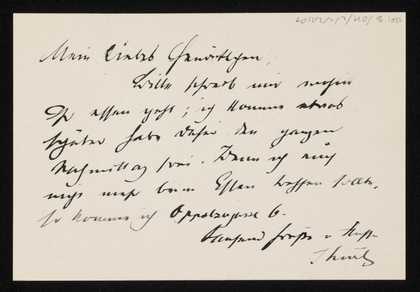 Mein liebes
Bitte schreib mir wohin
Ihr essen geht; ich komme etwas
später habe dafür den ganzen
Nachmittag frei. Wenn ich euch
nicht mehr beim Essen treffen sollte,
so komme ich Oppolzergasse 6.
Tausend Grüße u Küsse